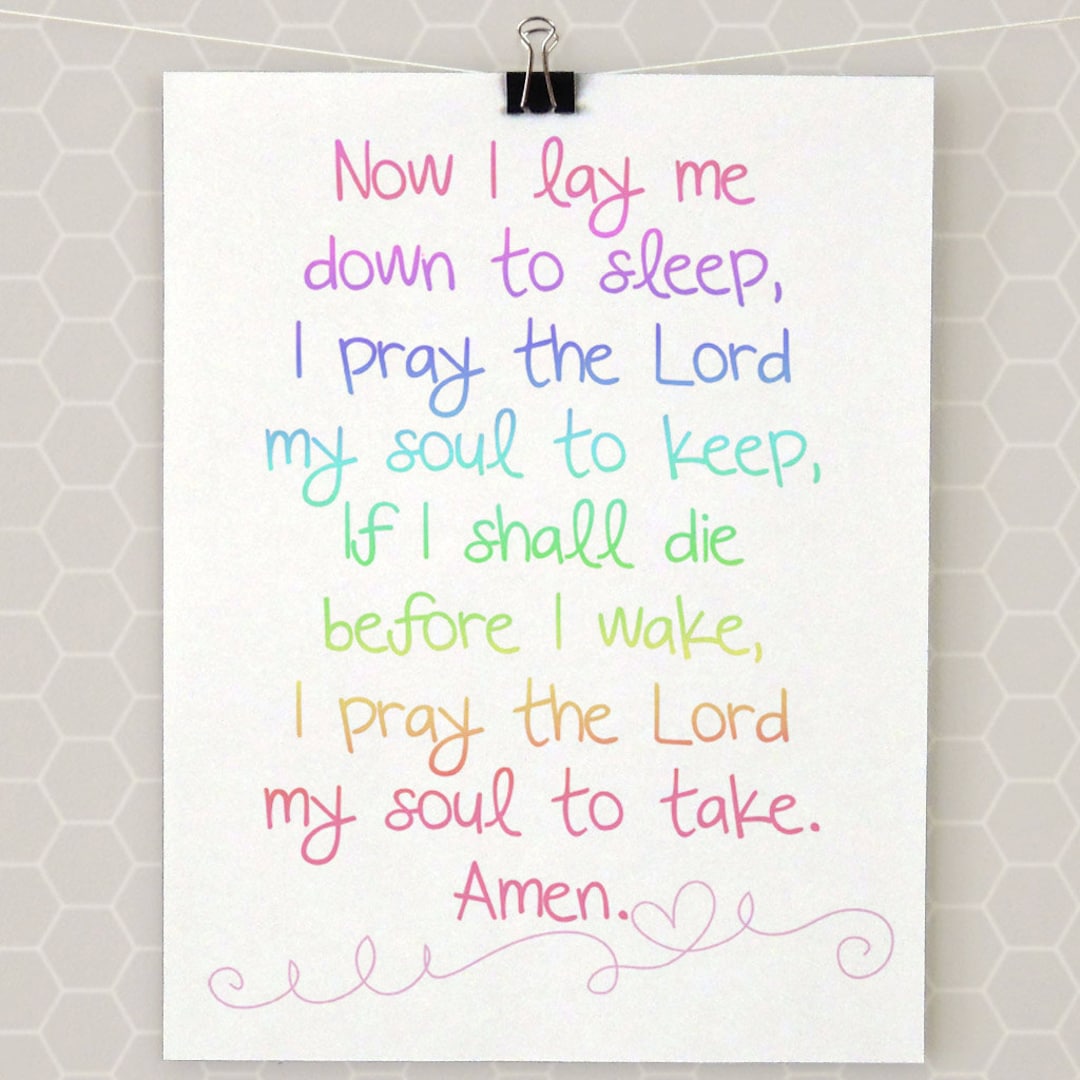 Now I lay me
down to sleep,
I pray the Lord
my soul to keep,
If I shall die
before I wake,
I pray the Lord
my soul to take.
Amen.